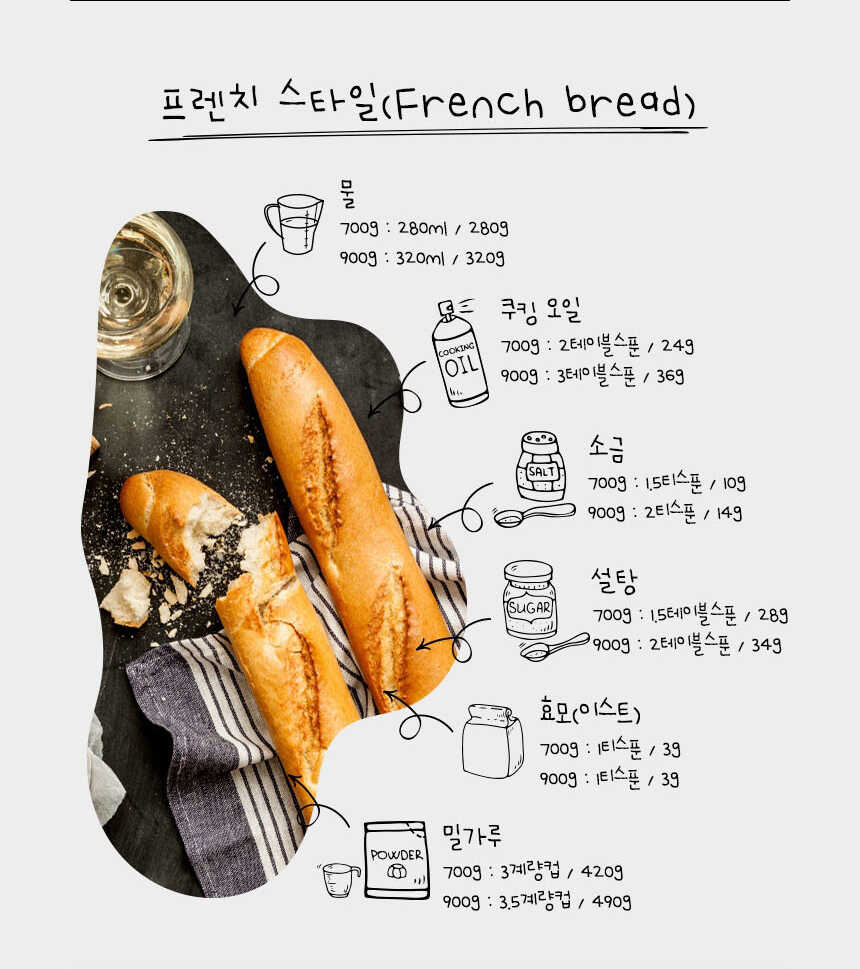 프렌치 스타일(French bread)
물
700g : 280ml / 280g
900g : 320ml / 320g
COOKING
OIL
쿠킹 오일
700g : 2테이블스푼 / 24g
900g : 3테이블스푼 / 36g
SALT
소금
700g : 1.5티스푼 / 10g
900g : 2티스푼 / 14g
SUGAR
설탕
700g : 1.5테이블스푼 / 28g
900g : 2테이블스푼 / 34g
효모(이스트)
700g : 1티스푼 / 3g
900g : 1티스푼 / 3g
POWDER
밀가루
700g : 3계량컵 / 420g
900g : 3.5계량컵 / 490g